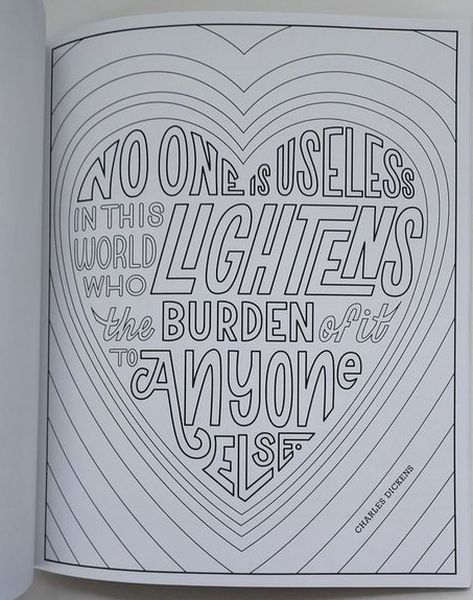 NO ONE IS USELESS
IN THIS
WORLD
WHO
LIGHTENS
the BURDEN of it
TO ANYONE
ELSE.
CHARLES DICKENS